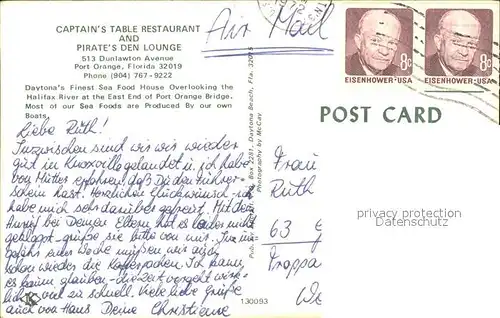 CAPTAIN'S TABLE RESTAURANT
AND
PIRATE'S DEN LOUNGE
513 Dunlawton Avenue
Port Orange, Florida 32019
Phone (904) 767-9222
Daytona's Finest Sea Food House Overlooking the
Halifax River at the East End of Port Orange Bridge.
Most of our Sea Foods are Produced By our own
Boats.
Air Mail
8c 8c
EISENHOWER·USA EISENHOWER·USA
POST CARD
Liebe Ruth!
Inzwischen sind wir wieder
gut in Knoxville gelandet u. ich habe
von Mutter erfahren, daß Du den Führer-
schein hast. Herzlichen Glückwunsch - ich
habe mich sehr darüber gefreut. Mit dem
Anruf bei Deinen Eltern hat es leider nicht
geklappt - grüße sie bitte von mir. In
gefähr einer Woche müssen wir auch
schon wieder die Koffer packen. Ich kann
es kaum glauben - die Zeit vergeht wirk-
lich viel zu schnell. Viele liebe Grüße
auch von Hans Deine Christiane
Box 2281, Daytona Beach, Fla. 32015
Photography by McCay
Frau
Ruth
63
130093
privacy protection
oldthing.com
K